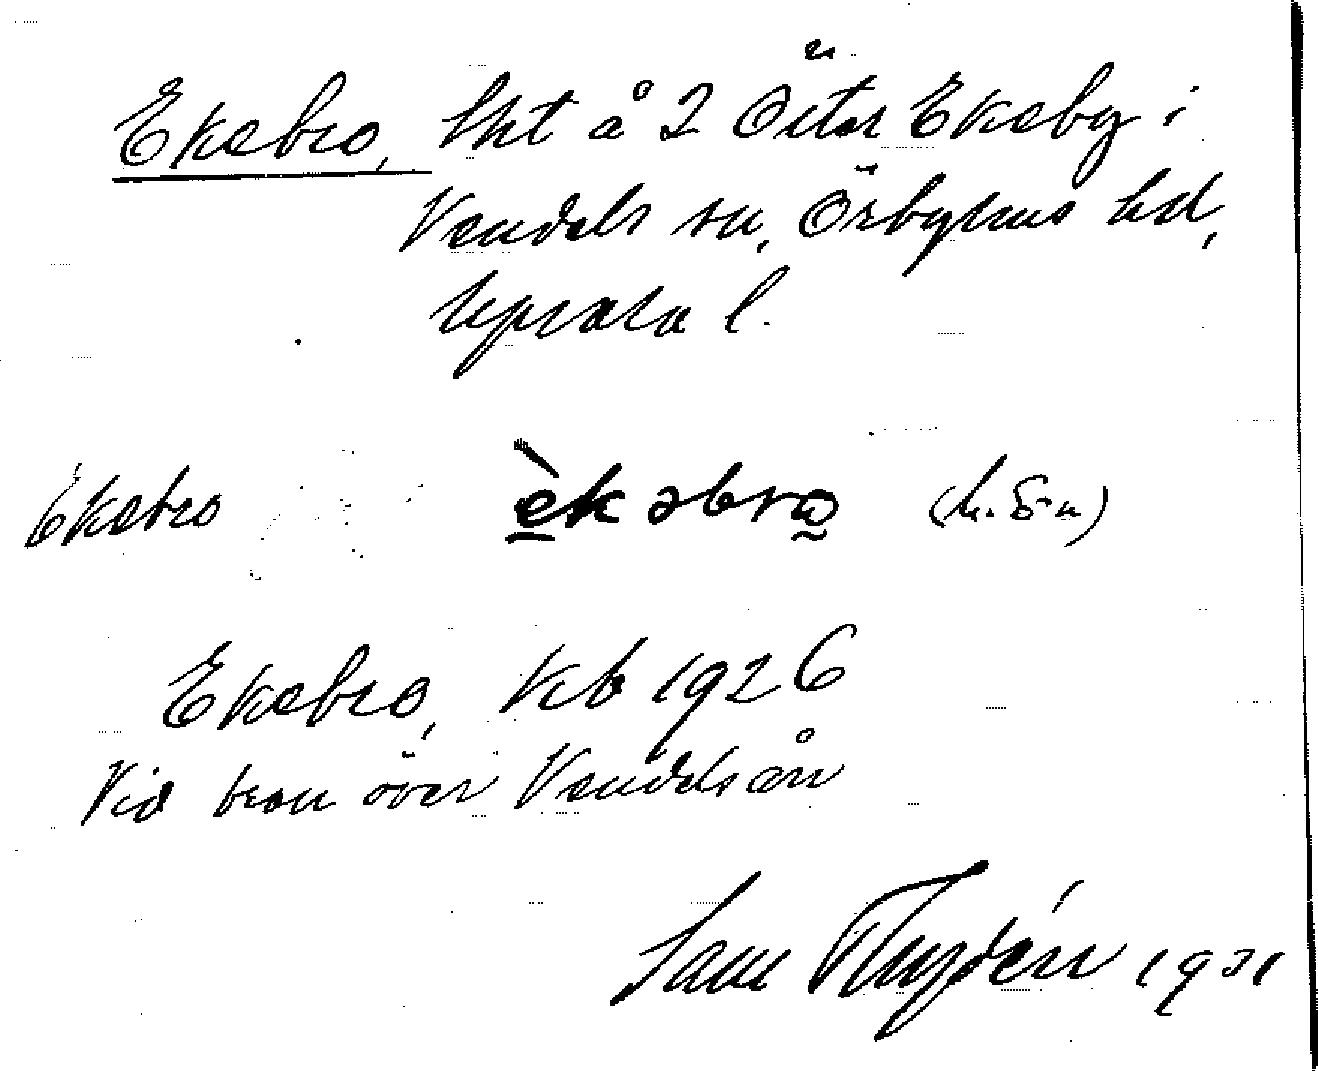 Ekebro, lht å 2 Öster Ekeby i
Vendels sn, Örbyhus hd,
Uppsala l.
Ekebro èkəbro
Ekebro, kb 1926
Vid bron över Vendelsån
Sam 1931